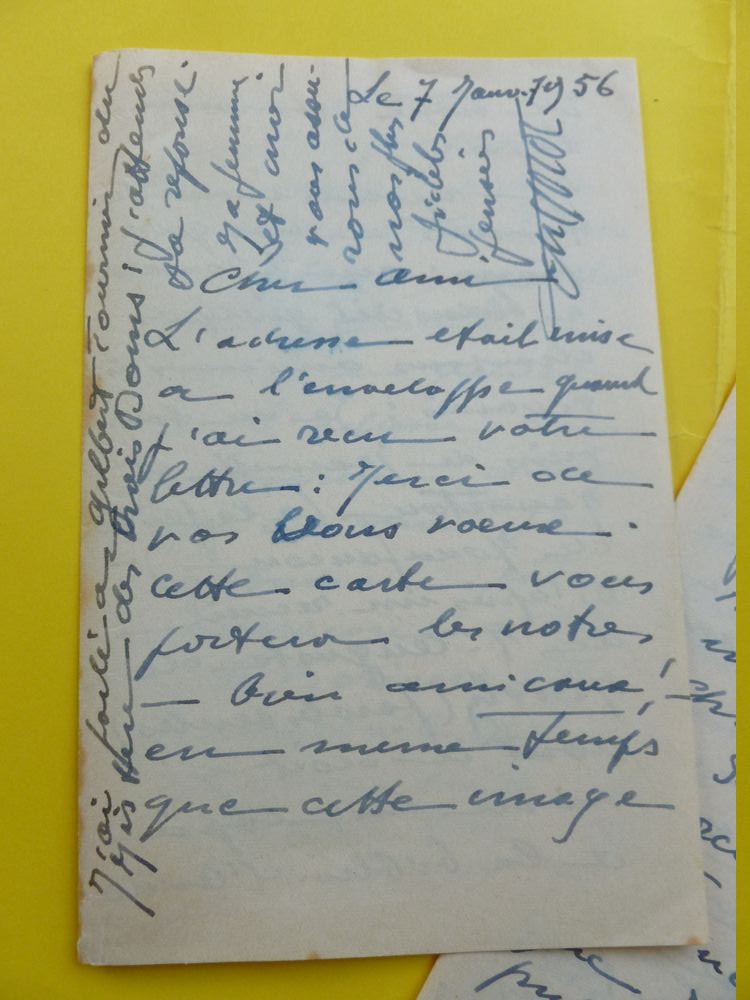 Le 7 Janv. 1956
Cher ami
L'adresse etait mise
a l'enveloppe quand
j'ai recu votre
lettre : Merci de
vos bons voeux.
cette carte vous
portera les notres
— bien amicaux,
en meme Temps
que cette image
J'ai parlé a Gilbert Tournier du
des trois Dons ! J'attends
sa reponse
Ma femme
et moi
vous assu-
rons de
nos plus
fideles
pensées